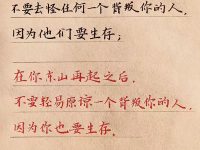 不要去怪任何一个背叛你的人，
因为他们要生存；
在你东山再起之后，
不要轻易原谅一个背叛你的人，
因为你也要生存．